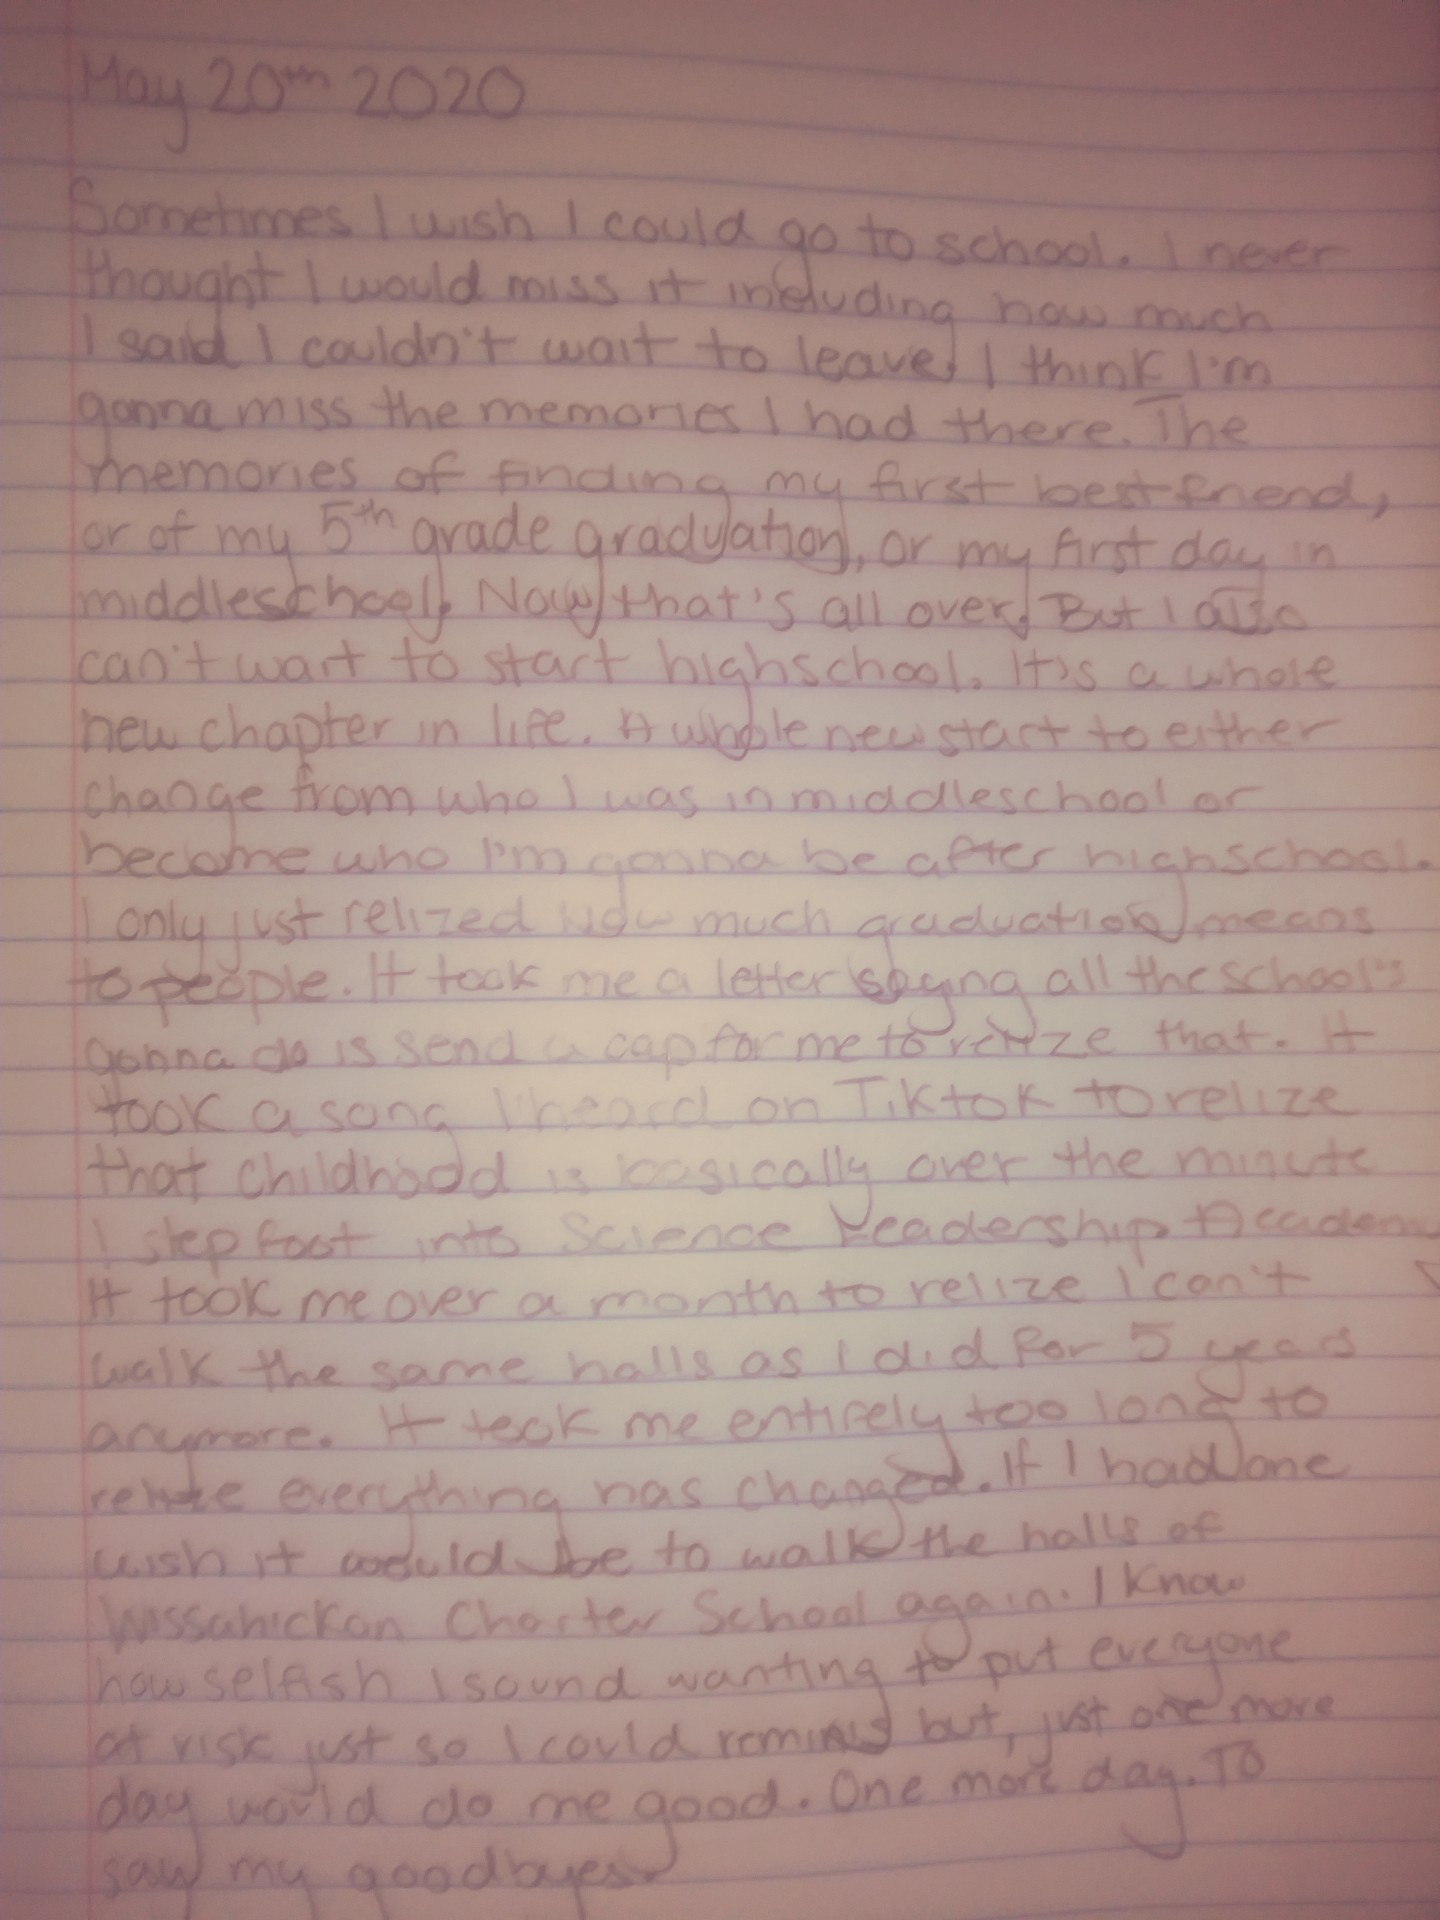 May 20th 2020
Sometimes I wish I could go to school. I never
thought I would miss it including how much
I said I couldn't wait to leave. I think I'm
gonna miss the memories I had there. The
memories of finding my first best friend,
or of my 5th grade graduation, or my first day in
middleschool. Now that's all over. But I also
can't wait to start highschool. It's a whole
new chapter in life. A whole new start to either
change from who I was in middleschool or
become who I'm gonna be after highschool.
I only just relized how much graduation means
to people. It took me a letter saying all the school's
gonna do is send a cap for me to relize that. It
took a song I heard on Tiktok to relize
that childhood is basically over the minute
I step foot into Science Leadership Academy
It took me over a month to relize I can't
walk the same halls as I did for 5 years
anymore. It took me entirely too long to
relize everything has changed. If I had one
wish it would be to walk the halls of
Wissahickon Charter School again. I know
how selfish I sound wanting to put everyone
at risk just so I could but, just one more
day would do me good. One more day. To
say my goodbyes.